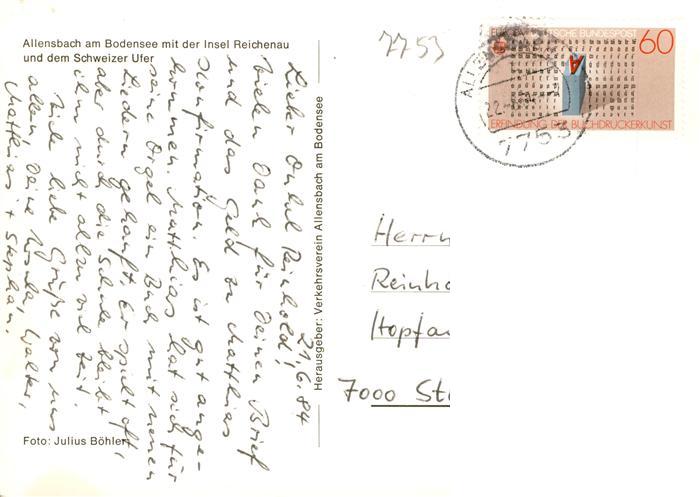 Allensbach am Bodensee mit der Insel Reichenau
und dem Schweizer Ufer
7753
DEUTSCHE BUNDESPOST
60
ERFINDUNG DER BUCHDRUCKERKUNST
7753
21.6.84
Lieber Onkel Reinhold!
Vielen Dank für Deinen Brief
und das Geld zu Matthias
Konfirmation. Es ist gut ange-
kommen. Matthias hat sich für
seine Orgel ein Buch mit neuen
Liedern gekauft. Er spielt oft,
aber durch die Schule bleibt
ihm nicht allzu viel Zeit.
Viele liebe Grüße von uns
allen, Deine Ursula, Walter,
Matthias + Stephan.
Herausgeber: Verkehrsverein Allensbach am Bodensee
Herrn
Reinho
Hopfau
7000 St
Foto: Julius Böhler